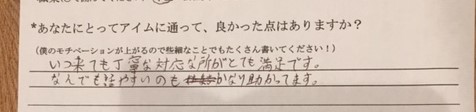 *あなたにとってアイムに通って、良かった点はありますか？
(僕のモチベーションが上がるので些細なことでもたくさん書いてください！)
いつ来ても丁寧な対応な所がとても満足です。
なんでも話やすいのもかなり助かってます。